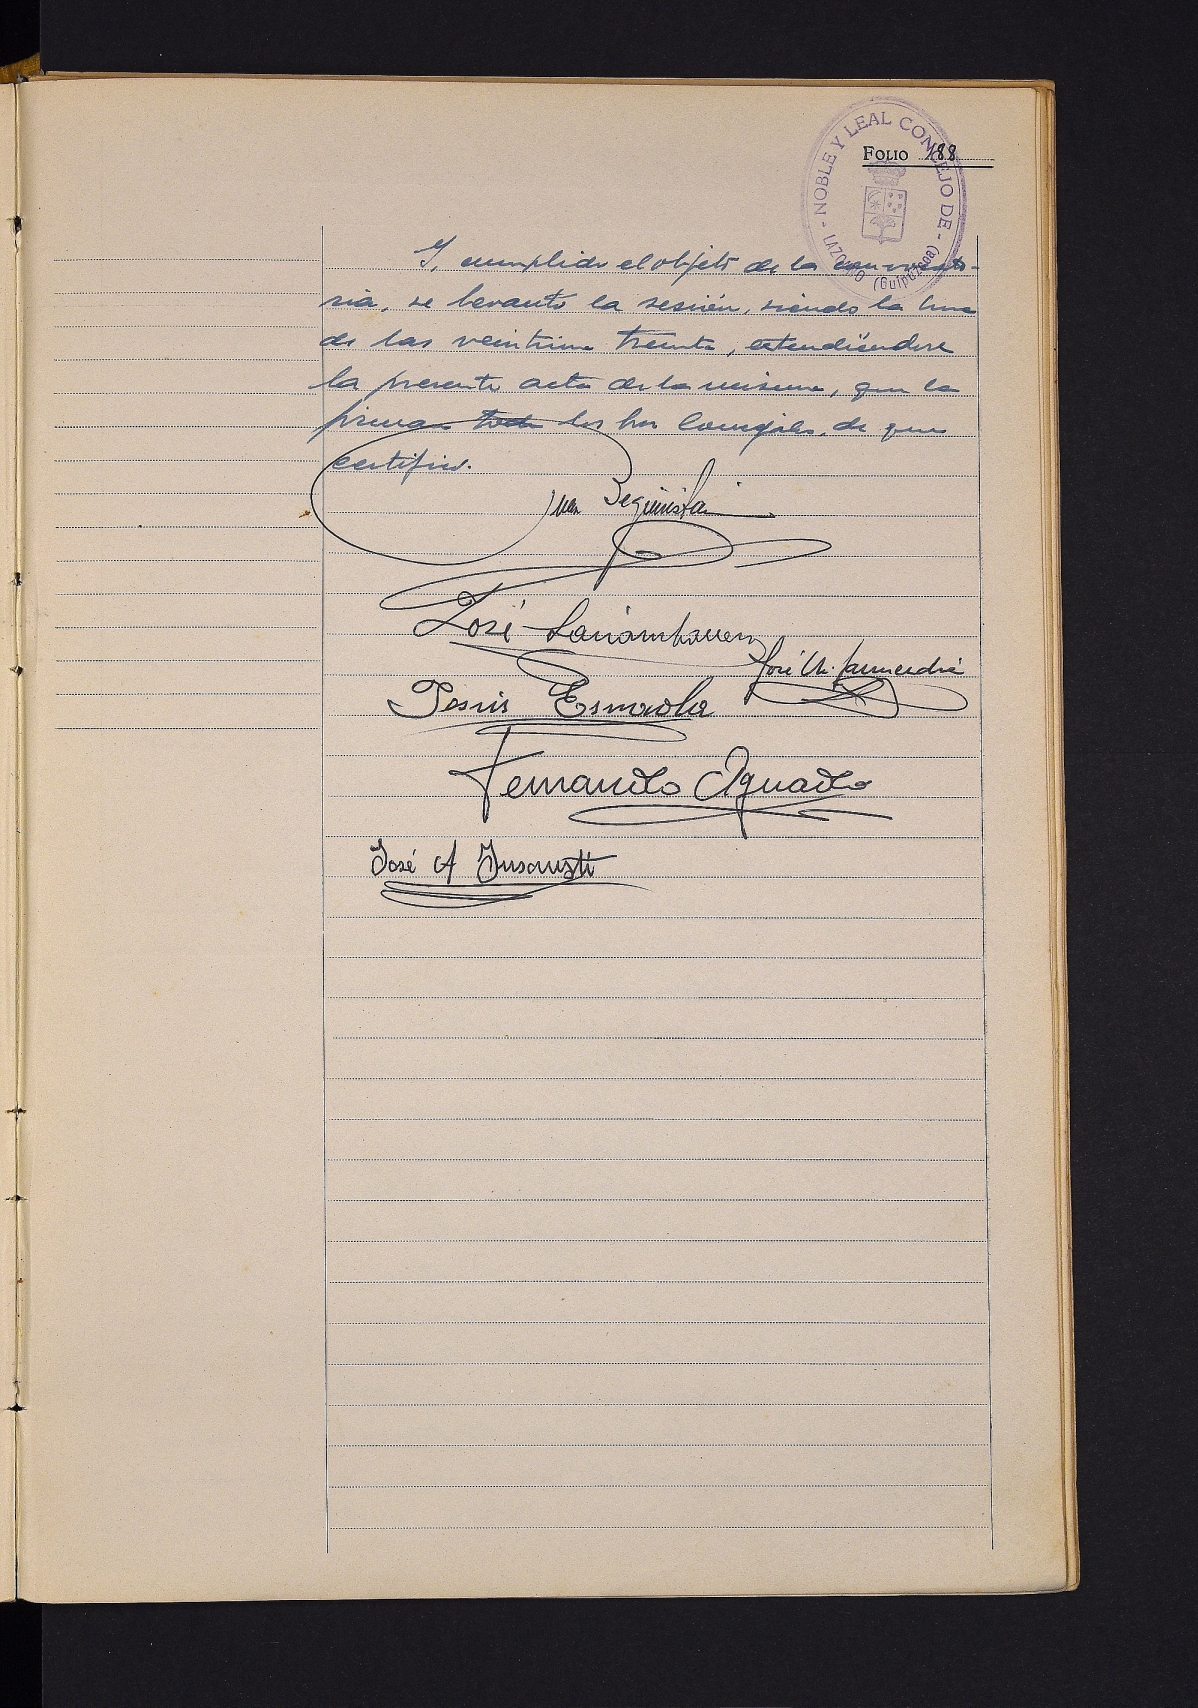 NOBLE Y LEAL CONCEJO DE
LAZCANO (Guipúzcoa)
FOLIO 188
Y, cumplido el objeto de la convocato-
ria, se levantó la sesión, siendo la hora
de las veintiuna treinta, extendiéndose
la presente acta de la misma, que la
firman todos los Sres Concejales, de que
certifico.
Juan Beguiristai
José
José M. Jauuendia
Jesús Esnaola
Fernando Aguado
José A Insausti